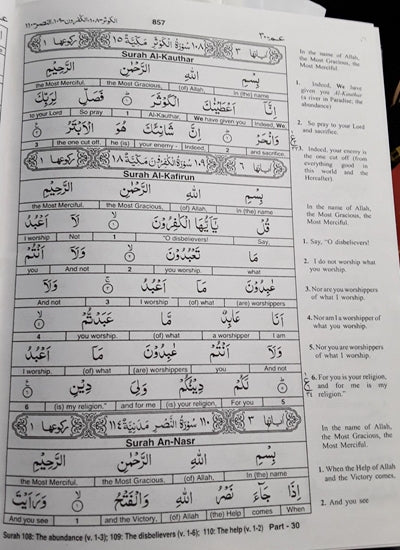 الكوثر-١٠٨، الكفرون-١٠٩، النصر-١١٠ 857 عم-٣٠
اٰیاتها ٣ ١٠٨ سُوْرَةُ الْكَوْثَرِ مَكِّيَّةٌ ١٥ رکوعها ١
Surah Al-Kauthar
بِسْمِ اللّٰهِ الرَّحْمٰنِ الرَّحِيْمِ
the Most Merciful. the Most Gracious, (of) Allah, In (the) name
اِنَّاۤ اَعْطَيْنٰكَ الْكَوْثَرَ ۝١ فَصَلِّ لِرَبِّكَ
to your Lord So pray 1 Al-Kauthar. We have given you Indeed, We
وَانْحَرْ ۝٢ اِنَّ شَانِئَكَ هُوَ الْاَبْتَرُ ۝٣
3 the one cut off. he (is) your enemy - Indeed, 2 and sacrifice.
اٰیاتها ٦ ١٠٩ سُوْرَةُ الْكٰفِرُوْنَ مَكِّيَّةٌ ١٨ رکوعها ١
Surah Al-Kafirun
بِسْمِ اللّٰهِ الرَّحْمٰنِ الرَّحِيْمِ
the Most Merciful. the Most Gracious, (of) Allah, In (the) name
قُلْ يٰۤاَيُّهَا الْكٰفِرُوْنَ ۝١ لَاۤ اَعْبُدُ
I worship Not 1 "O disbelievers! Say,
مَا تَعْبُدُوْنَ ۝٢ وَلَاۤ اَنْتُمْ
you And not 2 you worship. what
عٰبِدُوْنَ مَاۤ اَعْبُدُ ۝٣ وَلَاۤ
And not 3 I worship (of) what (are) worshippers
اَنَا عَابِدٌ مَّا عَبَدْتُّمْ ۝٤
4 you worship. (of) what a worshipper I am
وَلَاۤ اَنْتُمْ عٰبِدُوْنَ مَاۤ اَعْبُدُ
I worship. (of) what (are) worshippers you And not
۝٥ لَكُمْ دِيْنُكُمْ وَلِيَ دِيْنِ ۝٦
6 (is) my religion." and for me (is) your religion, For you 5
اٰیاتها ٣ ١١٠ سُوْرَةُ النَّصْرِ مَدَنِيَّةٌ ١١٤ رکوعها ١
Surah An-Nasr
بِسْمِ اللّٰهِ الرَّحْمٰنِ الرَّحِيْمِ
the Most Merciful. the Most Gracious, (of) Allah, In (the) name
اِذَا جَآءَ نَصْرُ اللّٰهِ وَالْفَتْحُ ۝١ وَرَاَيْتَ
And you see 1 and the Victory, (of) Allah (the) Help comes When
In the name of Allah,
the Most Gracious, the
Most Merciful.
1. Indeed, We have
given you Al-Kauthar
(a river in Paradise; the
abundance)
2. So pray to your Lord
and sacrifice.
3. Indeed, your enemy is
the one cut off (from
everything good in
this world and the
Hereafter).
In the name of Allah,
the Most Gracious, the
Most Merciful.
1. Say, "O disbelievers!
2. I do not worship what
you worship.
3. Nor are you worshippers
of what I worship.
4. Nor am I a worshipper of
what you worship.
5. Nor you are worshippers
of what I worship.
6. For you is your religion,
and for me is my
religion."
In the name of Allah,
the Most Gracious, the
Most Merciful.
1. When the Help of Allah
and the Victory comes,
2. And you see
Surah 108: The abundance (v. 1-3); 109: The disbelievers (v. 1-6); 110: The help (v. 1-2) Part - 30